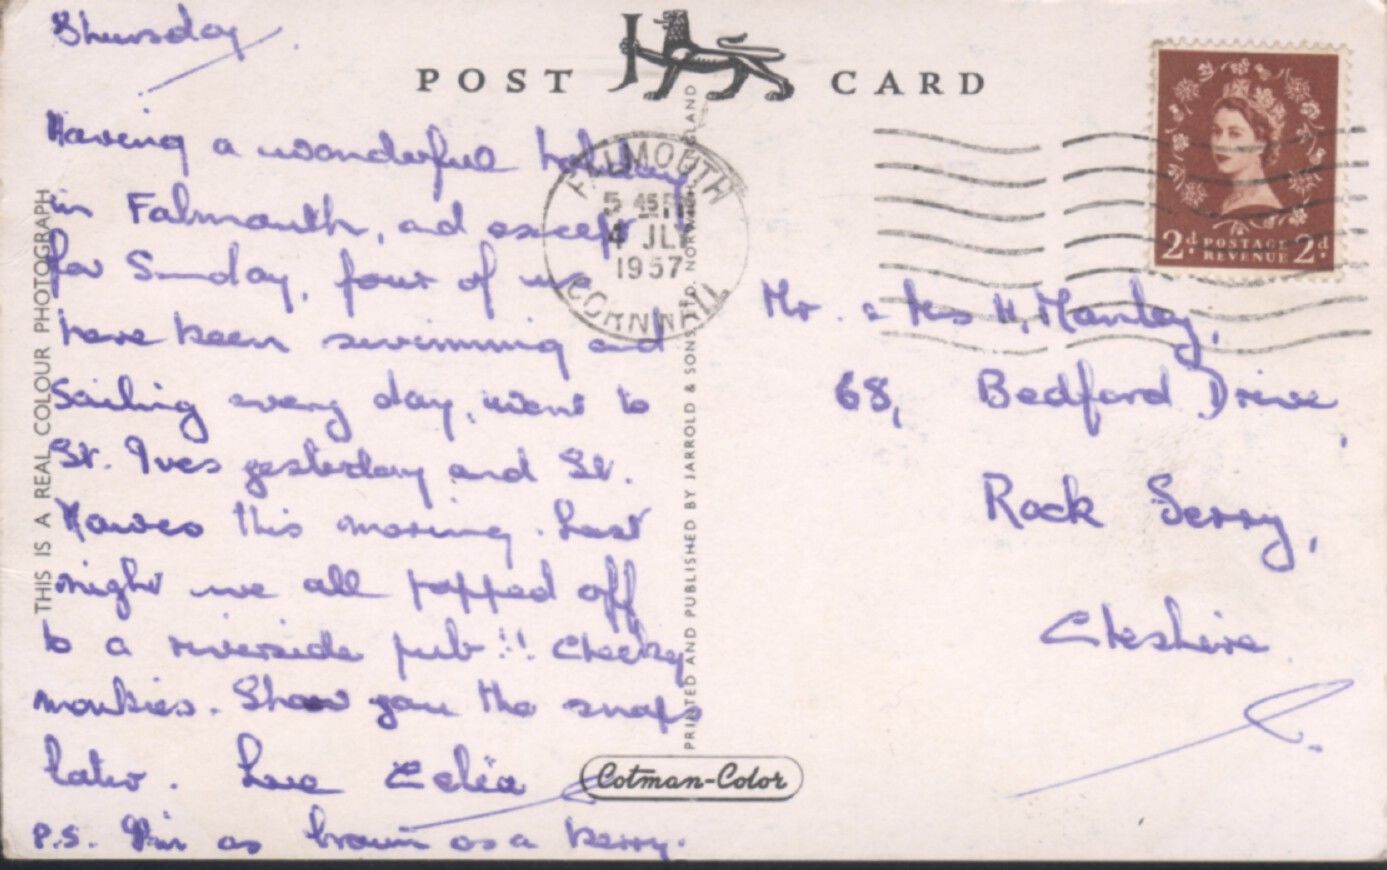 Thursday
POST CARD
Having a wonderful holiday
in Falmouth, and except
for Sunday, four of us
have been swimming and
sailing every day, went to
St. Ives yesterday and St.
Mawes this morning. Last
night we all popped off
to a riverside pub!! Cheeky
monkies. Show you the snaps
later. Love Celia
P.S. I'm as brown as a berry.
THIS IS A REAL COLOUR PHOTOGRAPH
PRINTED AND PUBLISHED BY JARROLD & SONS LTD. NORWICH ENGLAND
Cotman-Color
FALMOUTH
5 45 PM
4 JLY
1957
CORNWALL
2d POSTAGE REVENUE 2d
Mr. & Mrs H. Manley,
68, Bedford Drive,
Rock Ferry,
Cheshire